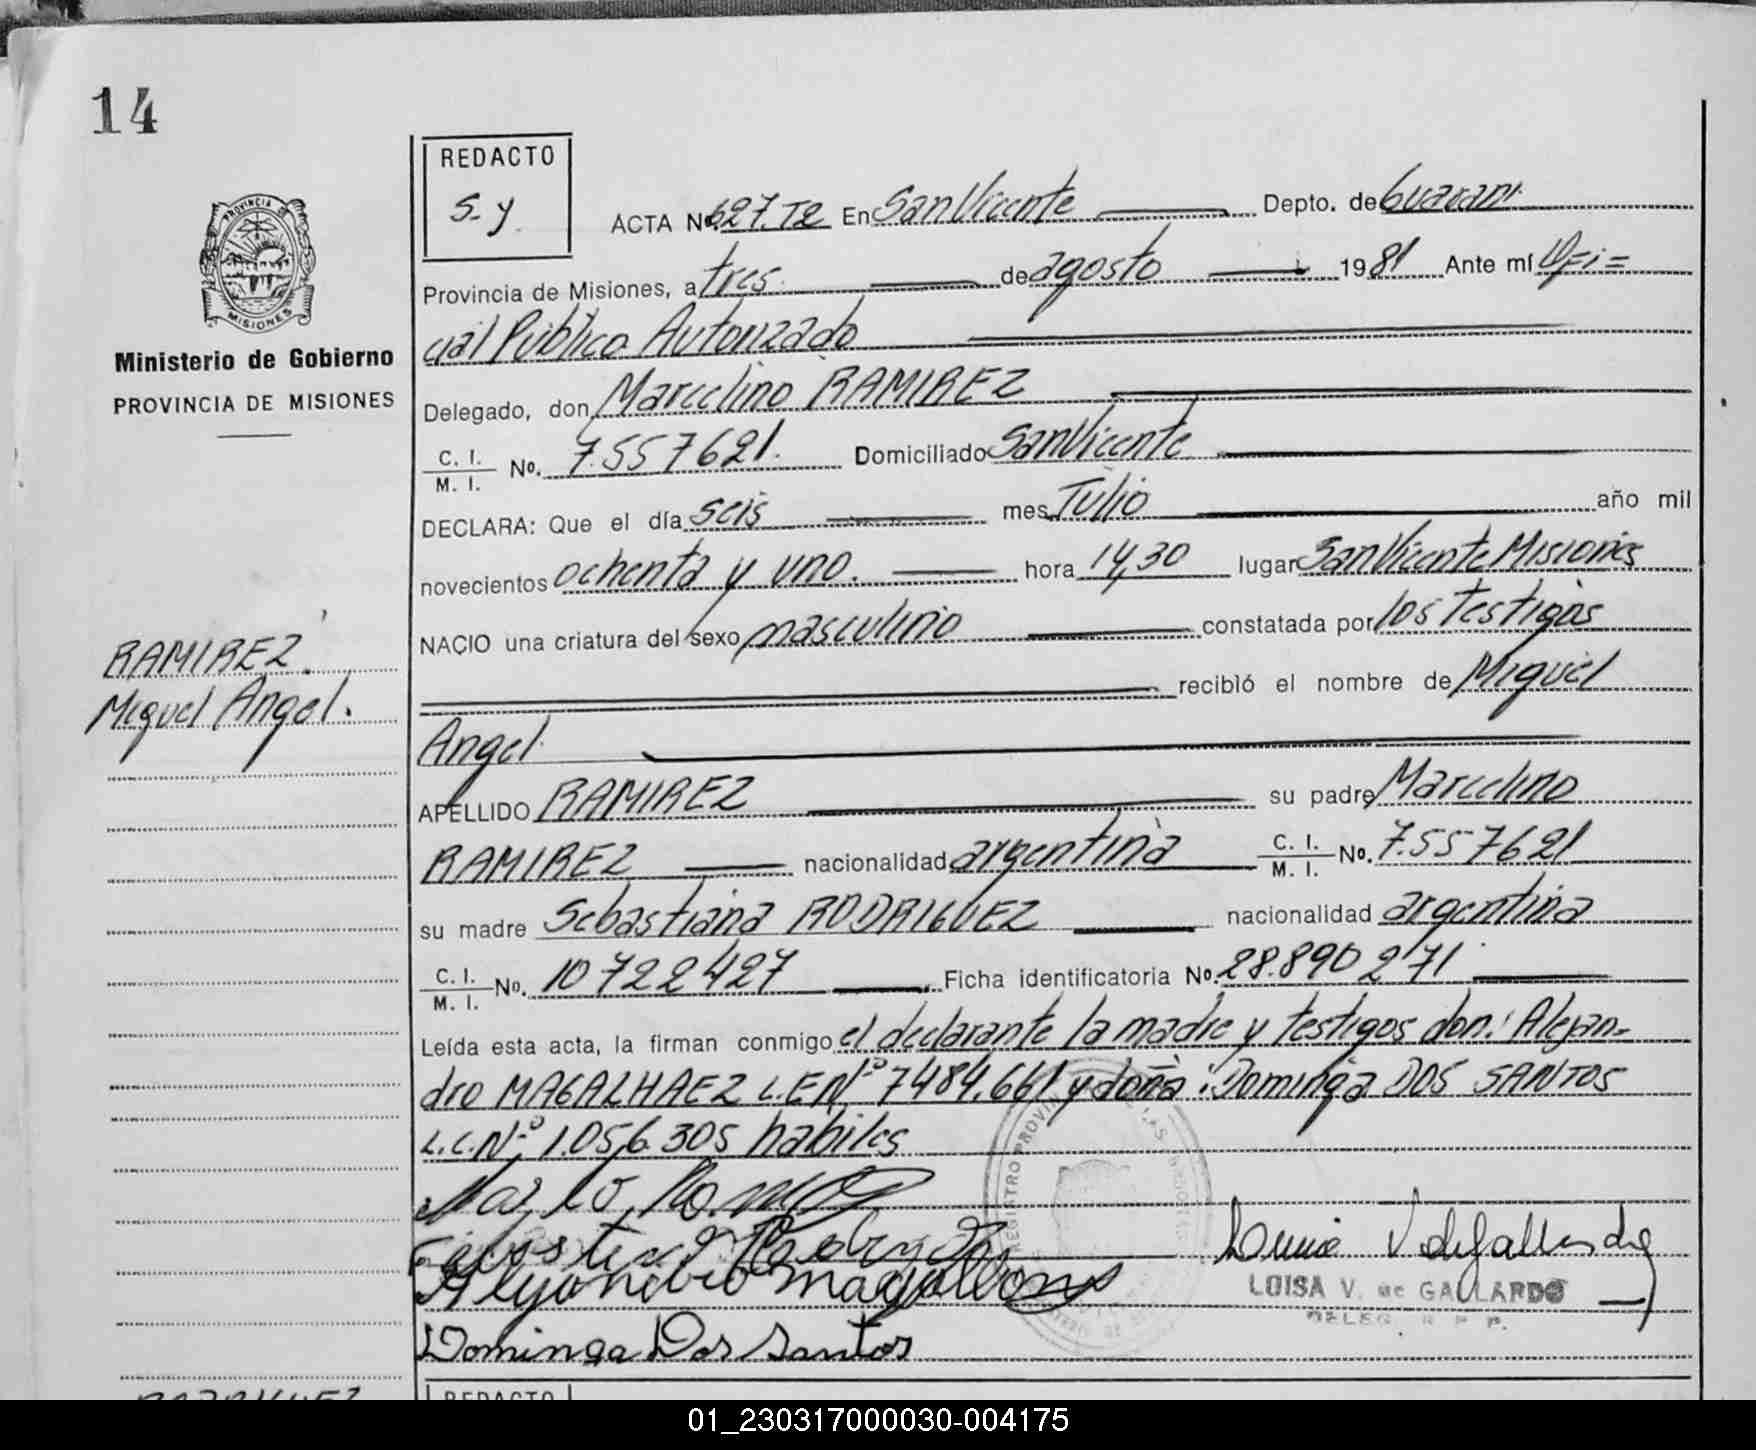 14
REDACTO
S. y.
PROVINCIA DE
MISIONES
Ministerio de Gobierno
PROVINCIA DE MISIONES
RAMIREZ.
Miguel Angel.
ACTA No. 627. T2 En San Vicente Depto. de Guarani
Provincia de Misiones, a tres de agosto 1981 Ante mí Ofi=
cial Público Autorizado
Delegado, don Marcelino RAMIREZ
C. I. / M. I. No. 7.557621. Domiciliado San Vicente
DECLARA: Que el día seis mes Julio año mil
novecientos ochenta y uno. hora 14,30 lugar San Vicente Misiones
NACIO una criatura del sexo masculino constatada por los testigos
recibió el nombre de Miguel
Angel
APELLIDO RAMIREZ su padre Marcelino
RAMIREZ nacionalidad argentina C. I. / M. I. No. 7.557621
su madre Sebastiana RODRIGUEZ nacionalidad argentina
C. I. / M. I. No. 10722427 Ficha identificatoria No. 28.890271
Leída esta acta, la firman conmigo el declarante la madre y testigos don: Alejan-
dro MAGALHAEZ L.E.Nº 7484.661 y doña: Dominga DOS SANTOS
L.C.Nº 1.056.305 habiles
REGISTRO PROVINCIAL DE LAS PERSONAS
LUISA V. de GALLARDO
DELEG. R. P. P.
Dominga Dos Santos
RODRIGUEZ
REDACTO
01_230317000030-004175